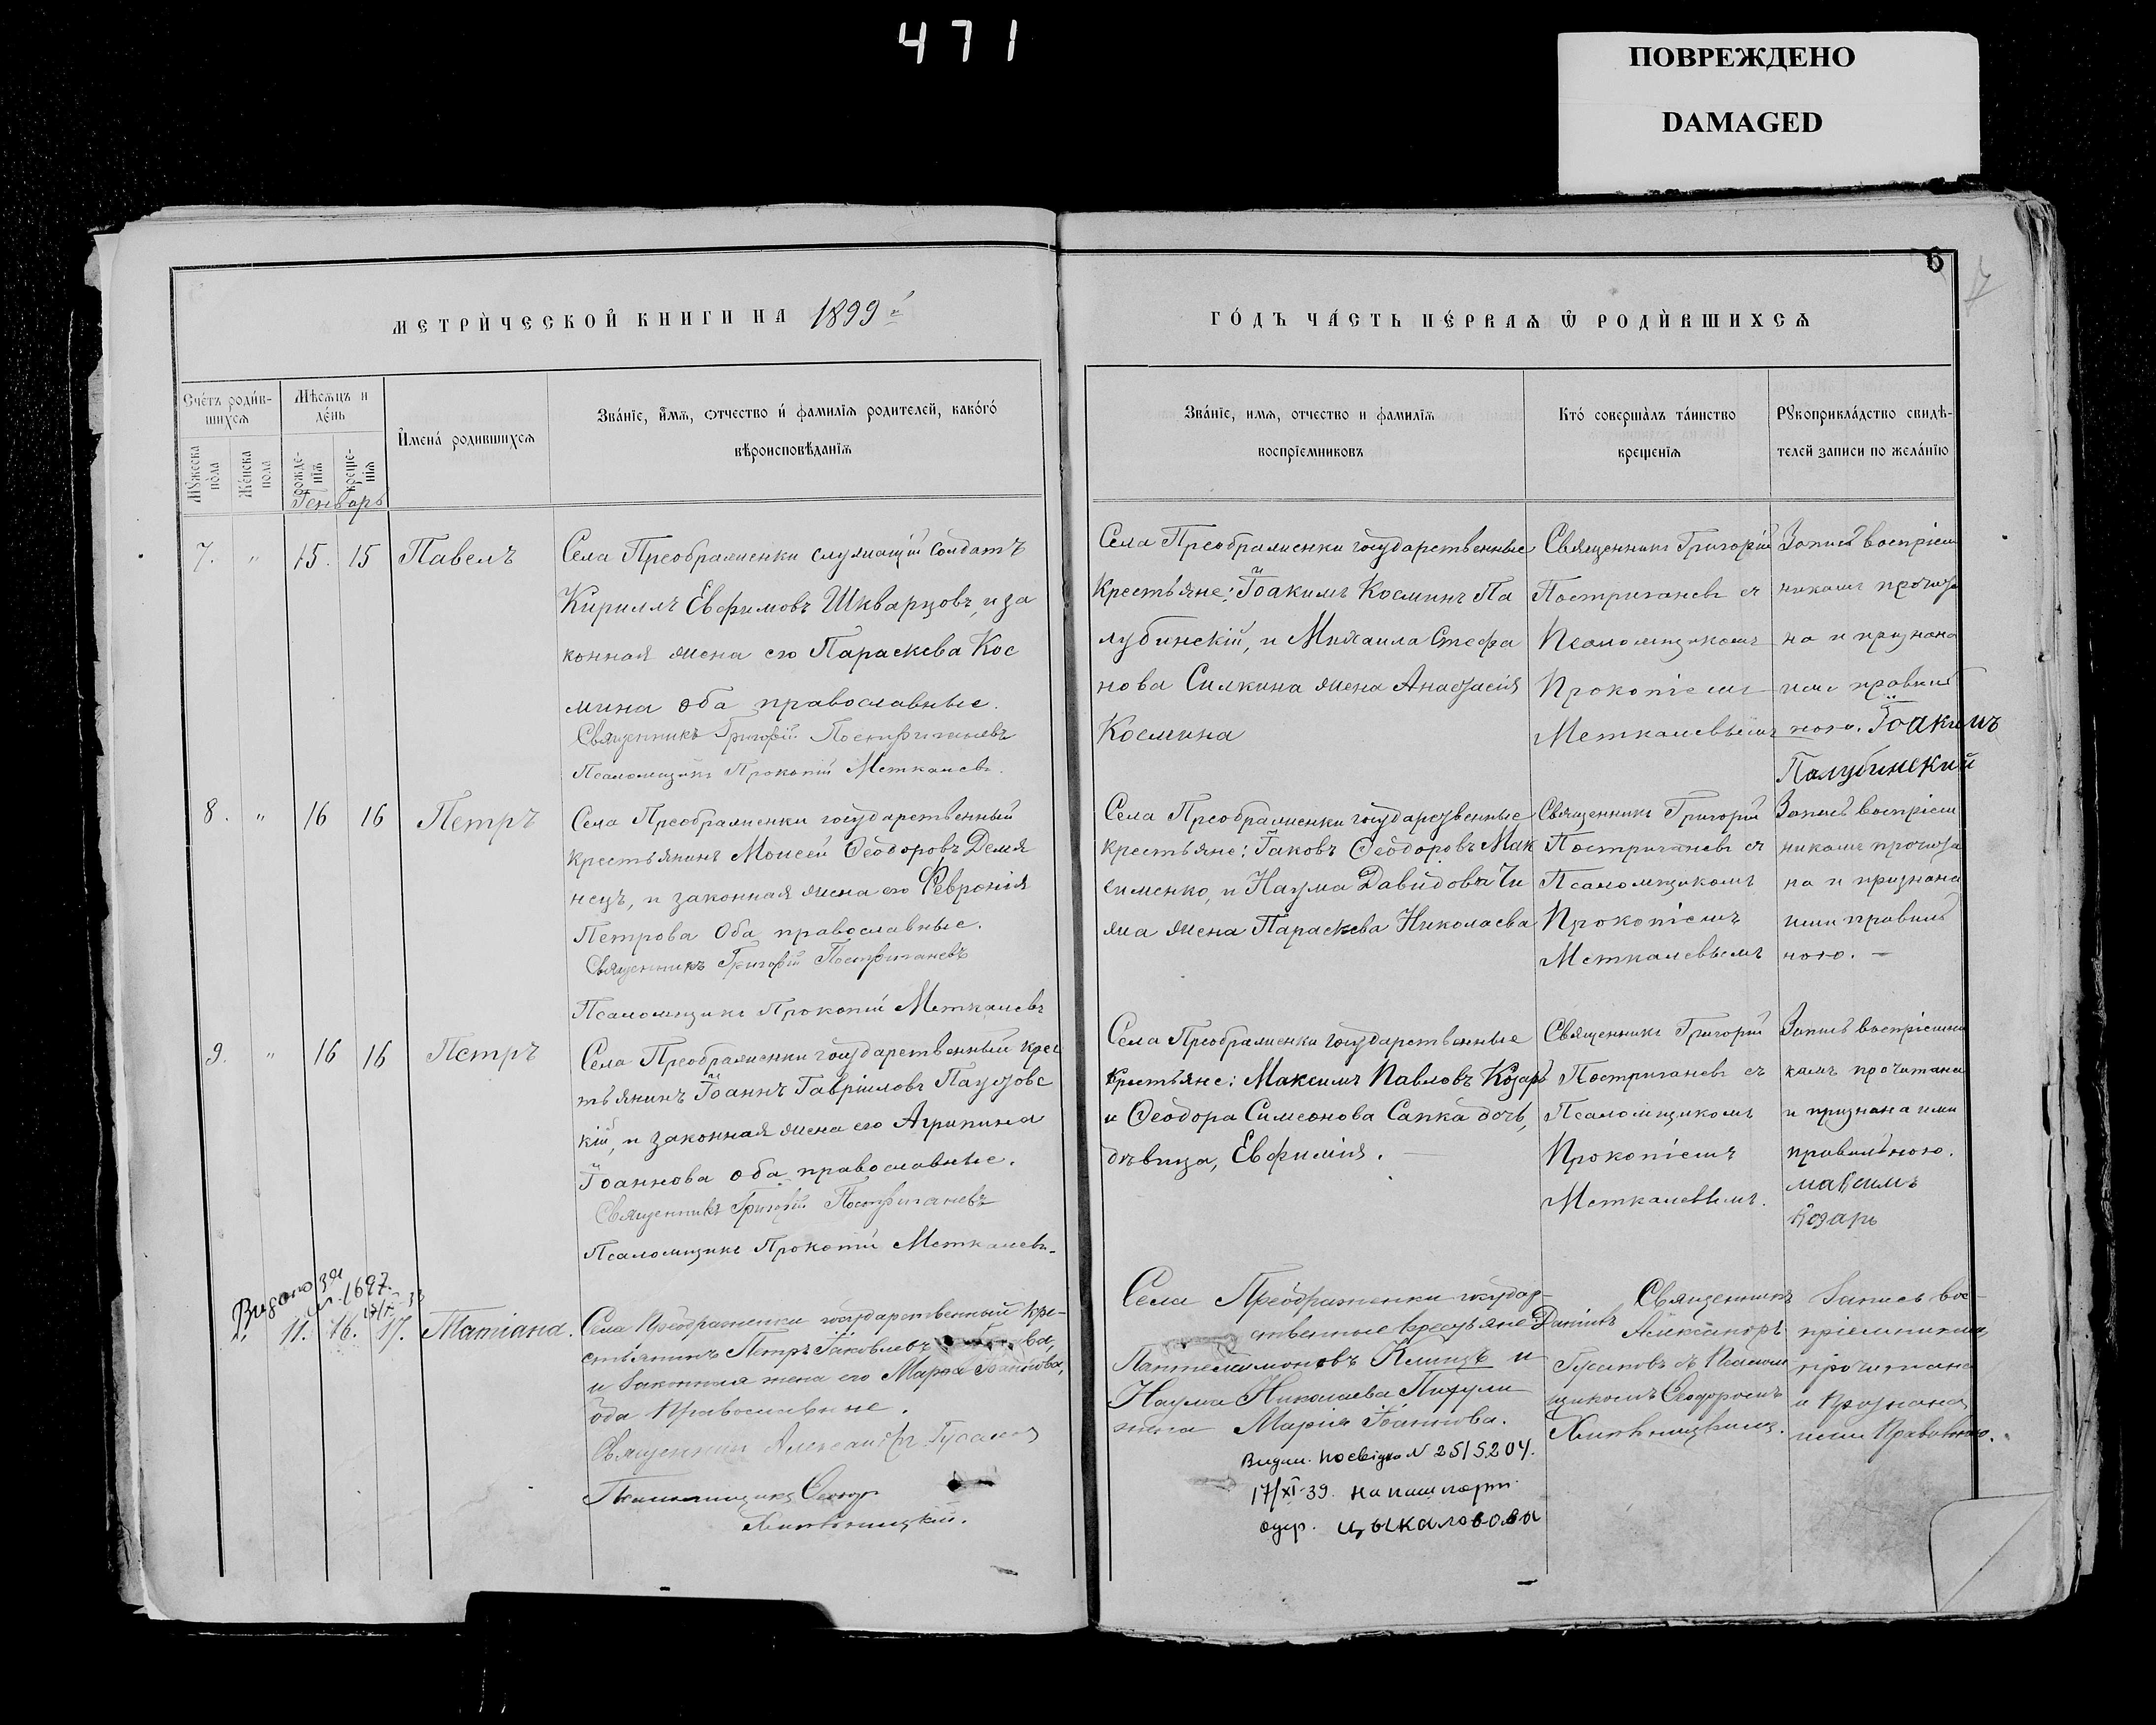 471
ПОВРЕЖДЕНО
DAMAGED
6
МЕТРИ́ЧЕСКОЙ КНИГИ НА 1899й
ГО́ДЪ ЧА́СТЬ ПЕ́РВАѦ Ѿ РОДИ́ВШИХСѦ
Сче́тъ роди́в-
шихсѧ
Мꙋ́жеска по́ла
Же́нска пола
Мѣсѧцъ и
де́нь
рожде-
нїѧ
креще-
нїѧ
Генварь
И҆мена́ родившихсѧ
Зва́нїе, и҆мѧ, отчество и҆ фамилїѧ родителей, како́го
вѣроисповѣданїѧ
Зва́нїе, имѧ, отчество и фамилїѧ
воспрїемниковъ
Кто́ соверша́лъ та́инство
крещенїѧ
Рꙋкоприкла́дство свидѣ-
телей записи по жела́нїю
7. " 15. 15 Павелъ
Села Преображенки служащій солдатъ
Кириллъ Евфимовъ Шкварцовъ, и за
конная жена его Параскева Кос
мина оба православные.
Священникъ Григорій Постригачевъ
Псаломщикъ Прокопій Меткалевъ.
Села Преображенки государственные
Крестьяне: Іоакимъ Косминъ Па
лубинскій, и Михаила Стефа
нова Силкина жена Анастасія
Космина
Священникъ Григорій
Постригачевъ съ
Псаломщикомъ
Прокопіемъ
Меткалевымъ
Запись воспріем
никами прочита
на и признана
ими правиль
ною. Іоакимъ
Палубинский
8. " 16 16 Петръ
Села Преображенки государственный
крестьянинъ Моисей Ѳеодоровъ Демя
нецъ, и законная жена его Феvронія
Петрова Оба православные.
Священникъ Григорій Постригачевъ
Псаломщикъ Прокопій Меткалевъ
Села Преображенки государственные
крестьяне: Іаковъ Ѳеодоровъ Мак
сименко, и Наума Давидова Чи
жа жена Параскева Николаева
Священникъ Григорій
Постригачевъ съ
Псаломщикомъ
Прокопіемъ
Меткалевымъ
Запись воспріем
никами прочита
на и признана
ими правиль
ною. —
9. " 16 16 Петръ
Села Преображенки государственный крес
тьянинъ Іоаннъ Гавріиловъ Паустовс
кій, и законная жена его Агрипина
Іоаннова оба православные.
Священникъ Григорій Постригачевъ
Псаломщикъ Прокопій Меткалевъ.
Села Преображенки государственные
крестьяне: Максимъ Павловъ Козарь
и Ѳеодора Симеонова Сапка дочь,
дѣвица, Евфимія. —
Священникъ Григорій
Постригачевъ съ
Псаломщикомъ
Прокопіемъ
Меткалевымъ.
Запись воспріемни
камъ прочитана
и признана ими
правильною.
максимъ
Козарь
Видано за
1697.
11. 16. 17. Татіана.
Села Преображенки государственный кре-
стьянинъ Петръ Іаковлевъ
и законная жена его Марѳа
оба православные.
Священникъ Александръ Гусаковъ
Псаломщикъ Ѳеодоръ
Села Преображенки государ-
ственные крестьяне Даниилъ
Пантелеимоновъ Климъ и
Наума Николаева Пирули
жена Марія Іоаннова.
Видан. посвідка N 25/5204.
17/XI-39. на пашпорт.
одер. цыкаловова
Священникъ
Александръ
Гусаковъ съ Псалом
щикомъ Ѳеодоромъ
Запись вос-
пріемниками
прочитана
и признана
ими правильною.